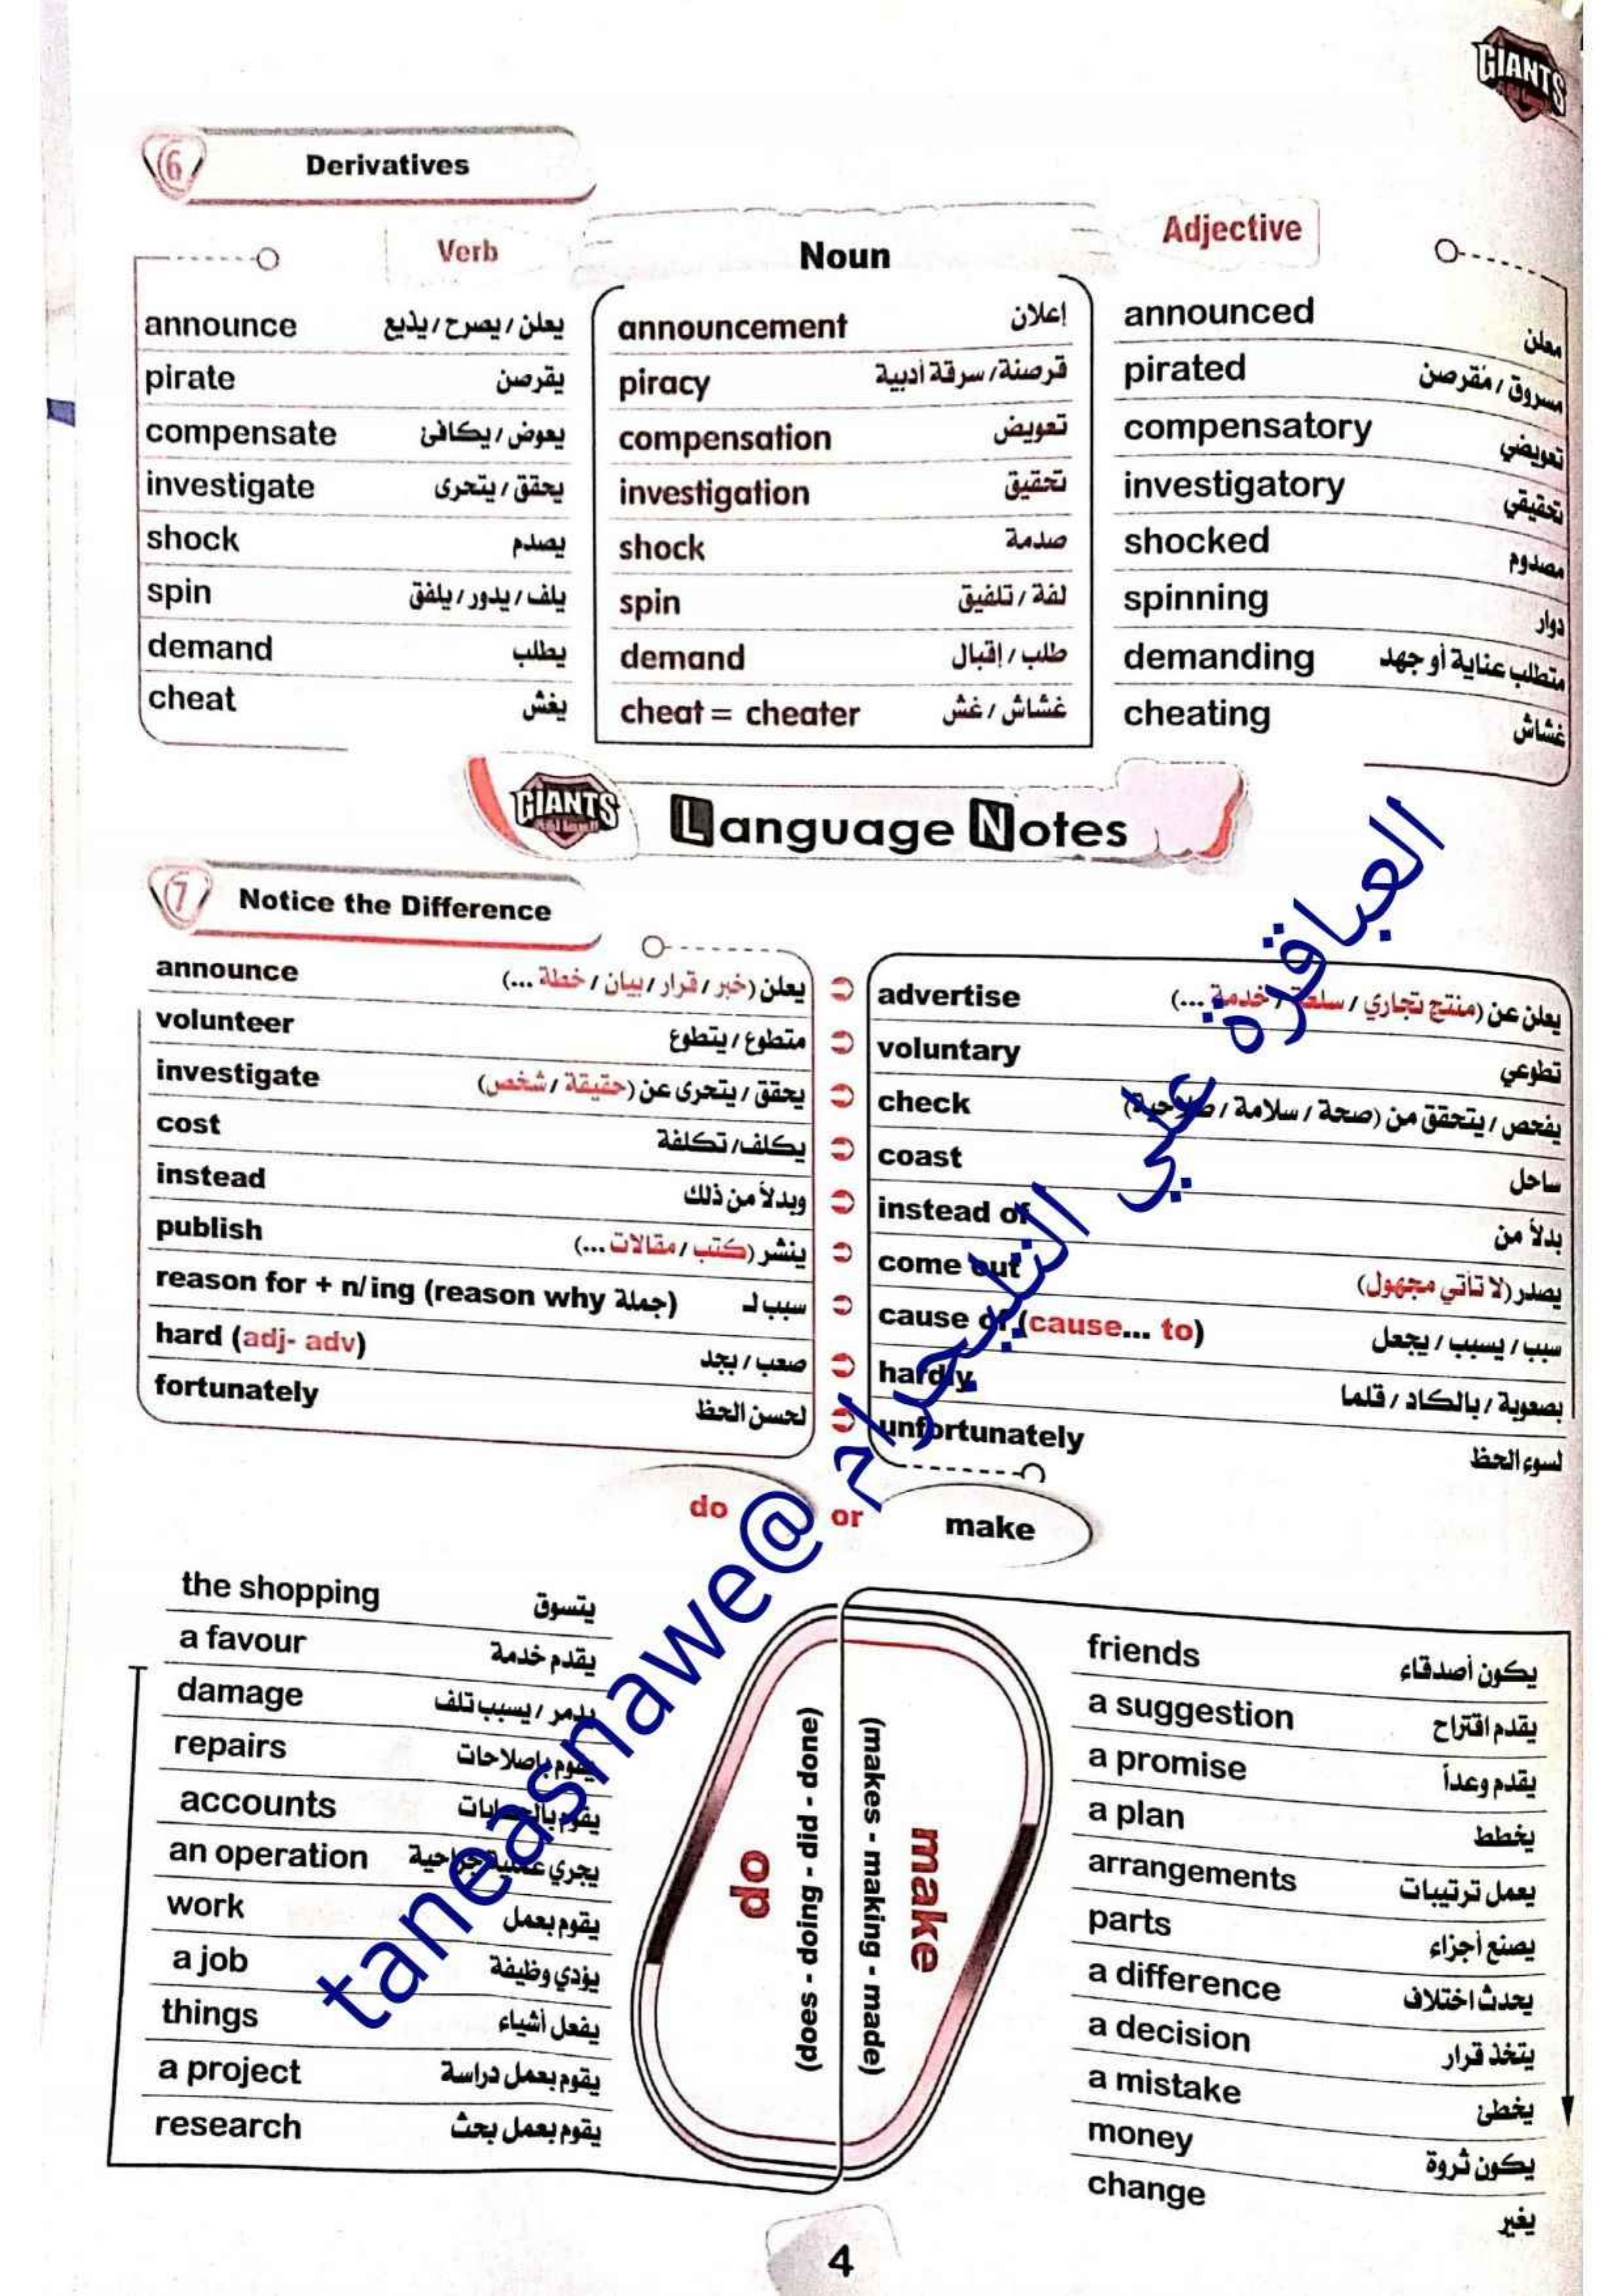 GIANTS
6 Derivatives
Verb Noun Adjective
announce يعلن / يصرح / يذيع announcement إعلان announced معلن
pirate يقرصن piracy قرصنة / سرقة أدبية pirated مسروق / مقرصن
compensate يعوض / يكافئ compensation تعويض compensatory تعويضي
investigate يحقق / يتحرى investigation تحقيق investigatory تحقيقي
shock يصدم shock صدمة shocked مصدوم
spin يلف / يدور / يلفق spin لفة / تلفيق spinning دوار
demand يطلب demand طلب / إقبال demanding متطلب عناية أو جهد
cheat يغش cheat = cheater غشاش / غش cheating غشاش
GIANTS Language Notes
7 Notice the Difference
announce يعلن (خبر / قرار / بيان / خطة ...) advertise يعلن عن (منتج تجاري / سلعة / خدمة ...)
volunteer متطوع / يتطوع voluntary تطوعي
investigate يحقق / يتحرى عن (حقيقة / شخص) check يفحص / يتحقق من (صحة / سلامة / صلاحية)
cost يكلف / تكلفة coast ساحل
instead وبدلاً من ذلك instead of بدلاً من
publish ينشر (كتب / مقالات ...) come out يصدر (لا تأتي مجهول)
reason for + n/ing (reason why جملة) سبب لـ cause of (cause... to) سبب / يسبب / يجعل
hard (adj- adv) صعب / بجد hardly بصعوبة / بالكاد / قلما
fortunately لحسن الحظ unfortunately لسوء الحظ
do or make
the shopping يتسوق
a favour يقدم خدمة
damage يدمر / يسبب تلف
repairs يقوم بإصلاحات
accounts يقوم بالحسابات
an operation يجري عملية جراحية
work يقوم بعمل
a job يؤدي وظيفة
things يفعل أشياء
a project يقوم بعمل دراسة
research يقوم بعمل بحث
do
(does - doing - did - done)
(makes - making - made)
make
friends يكون أصدقاء
a suggestion يقدم اقتراح
a promise يقدم وعداً
a plan يخطط
arrangements يعمل ترتيبات
parts يصنع أجزاء
a difference يحدث اختلاف
a decision يتخذ قرار
a mistake يخطئ
money يكون ثروة
change يغير
4
العباقرة علي التليجرام @taneasnawe